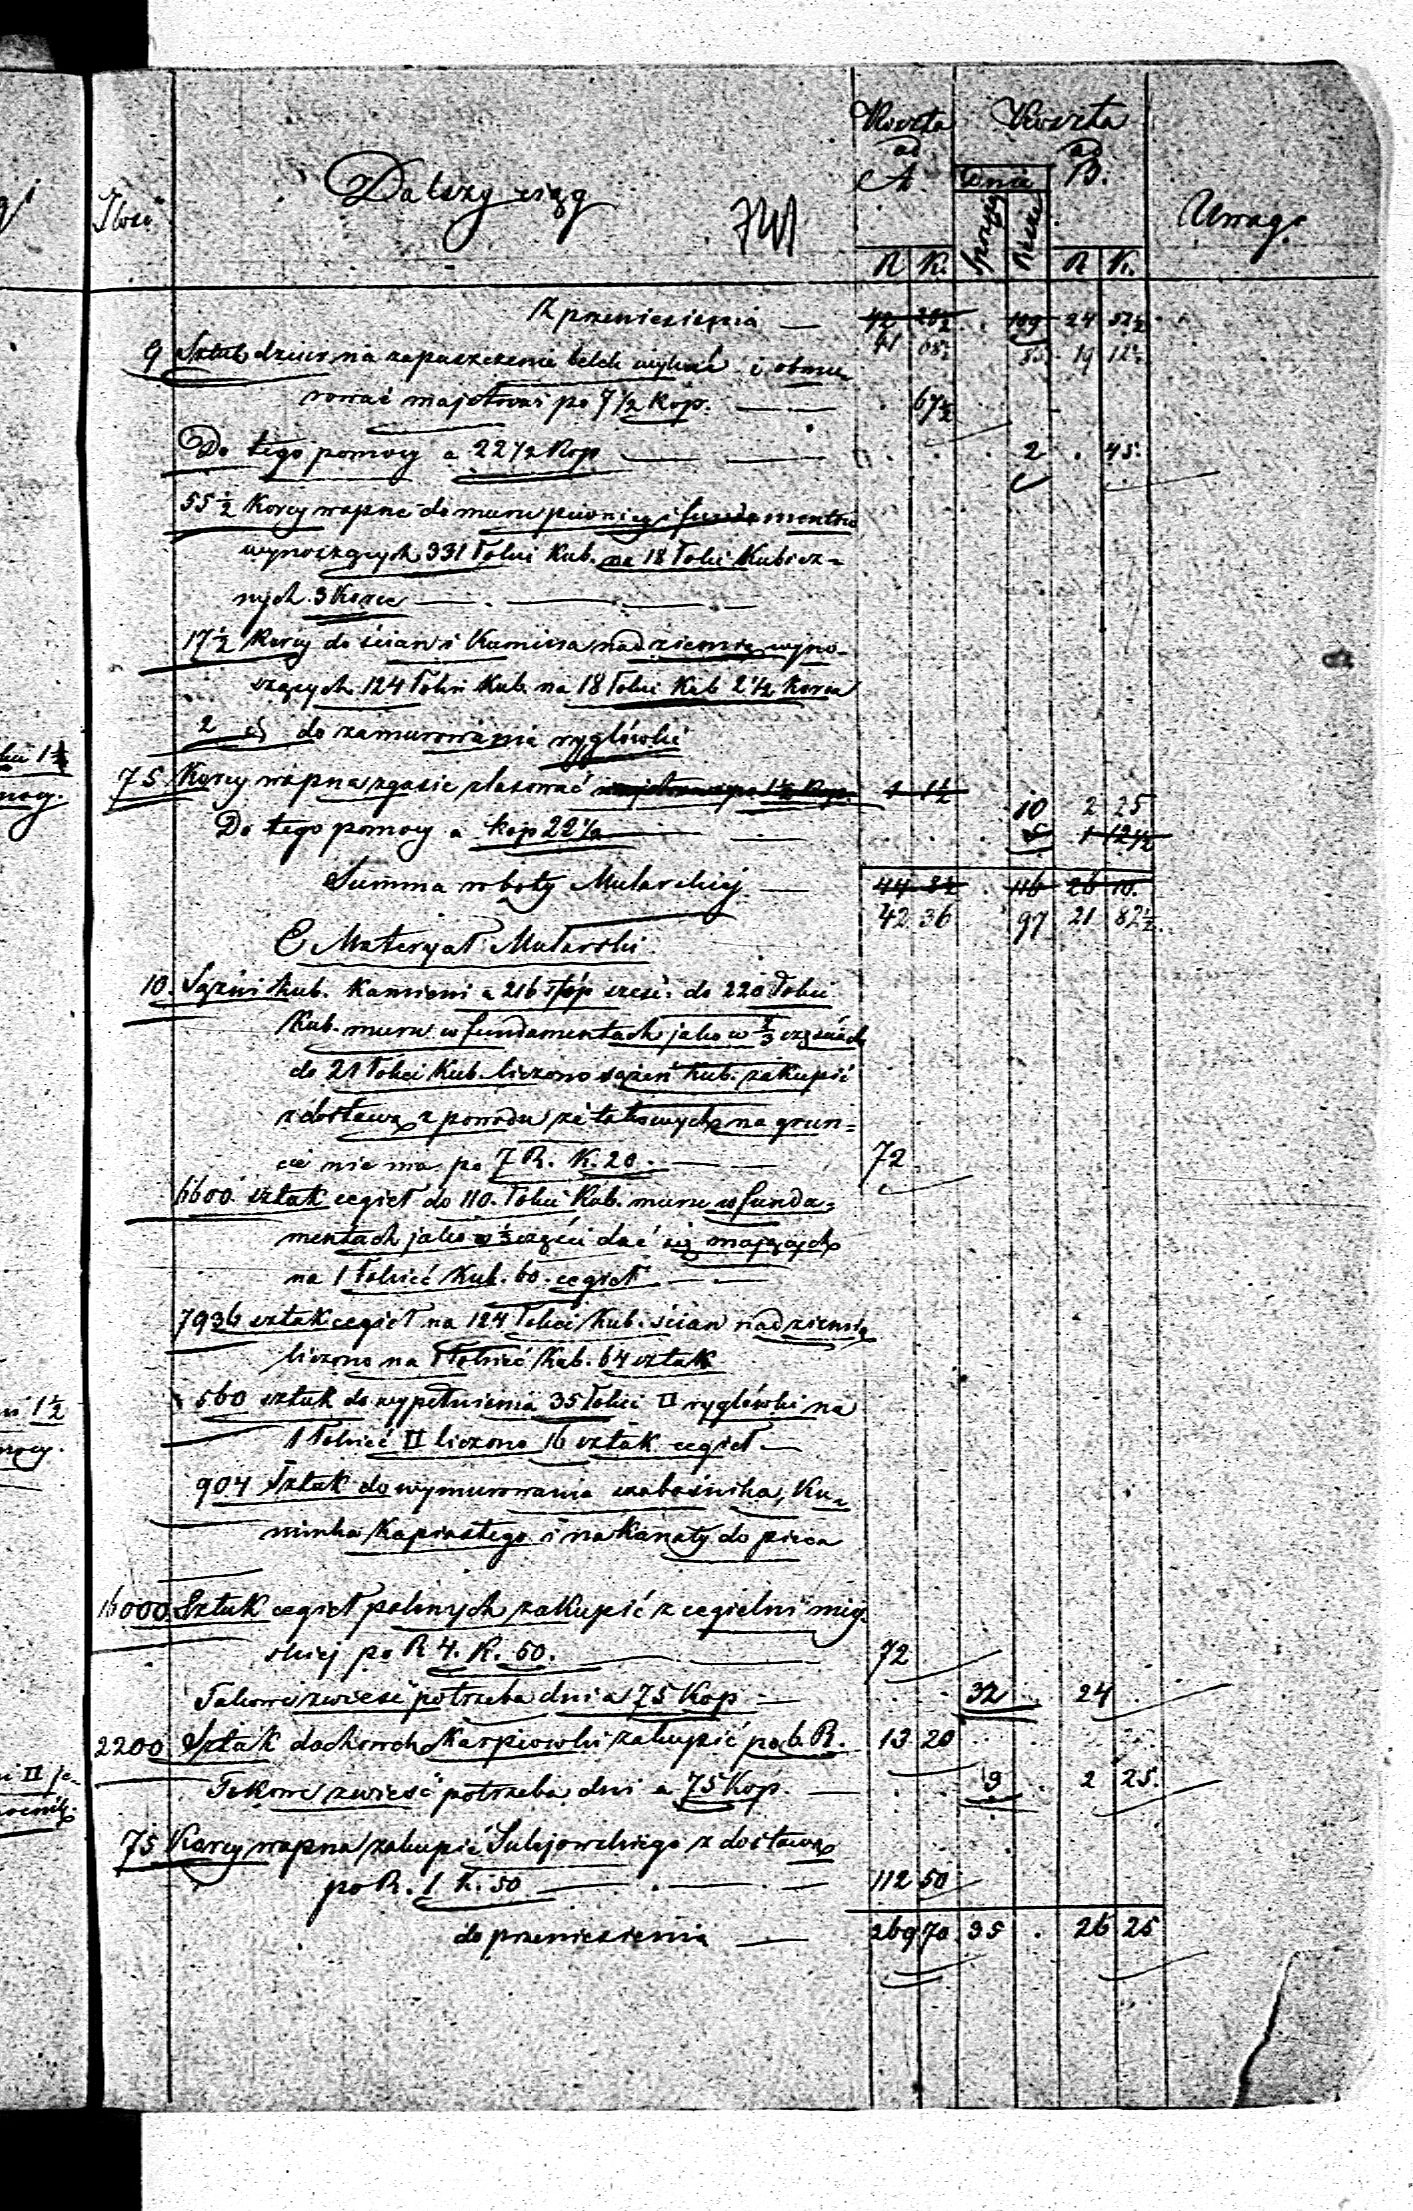 Koszta Koszta
ad ad
Ilość Dalszy ciąg A. Dnie B. Uwagi
R K. R K.
Z przeniesienia — 42 28½ . 109 24 52½
41 68½ 85 19 12½
9 Sztuk dziur na zapuszczenie belek wykuć i obmu
rować majstrowi po 7½ Kop. — — . 67½
Do tego pomocy a 22½ Kop — — 2 . 45.
55½ Korcy wapna do muru piwnicy i fundamentów
wynoszących 331 Łokci Kub. na 18 Łokci Kubicz=
nych 3 Korce — . —
17½ Korcy do ścian i Kamina nad ziemię wyno-
szących 124 Łokci Kub. na 18 Łokci Kub 2½ Korca
2 do zamurowania ryglówki
75 Korcy wapna zgasić zlasować majstrowi po 1½ Kop. 1 1½
10 2 25
Do tego pomocy a Kop 22½ — 5 1 12½
Summa roboty Mularskiej — 44 3½ . 116 26 10.
42 36 97 21 82½
C Materyał Mularski
10. Sążni Kub. Kamieni a 216 stóp sześć. do 220 Łokci
Kub. muru w fundamentach jako w ⅔ częściach
do 21 Łokci Kub. liczono sążeń Kub. zakupić
z dostawą z powodu że takowych na grun=
cie nie ma po 7 R. K. 20. — — 72
6600 sztuk cegieł do 110. Łokci Kub. muru w funda=
mentach jako w ⅓ części dać się mających
na 1 Łokieć Kub. 60. cegieł — —
7936 sztuk cegieł na 124 Łokci Kub. ścian nad ziemią
liczono na 1 Łokieć Kub. 64 sztuk
560 sztuk do wypełnienia 35 Łokci □ ryglówki na
1 Łokieć □ liczono 16 sztuk cegieł —
904 Sztuk do wymurowania szabaśnika, Ku=
minka Kapiastego i na Kanały do pieca
16000 Sztuk cegieł palonych zakupić z cegielni miej
skiej po R 4. K. 50. — 72
Takowe zwieść potrzeba dni a 75 Kop — 32 . 24
2200 Sztuk dachówek Karpiówki zakupić po 6 R. 13 20
Takowe zwieść potrzeba dni a 75 Kop. — 3 . 2 25.
75 Korcy wapna zakupić Sulejowskiego z dostawą
po R. 1 K. 50 — . — 112 50
do przeniesienia — 269 70 35 . 26 25